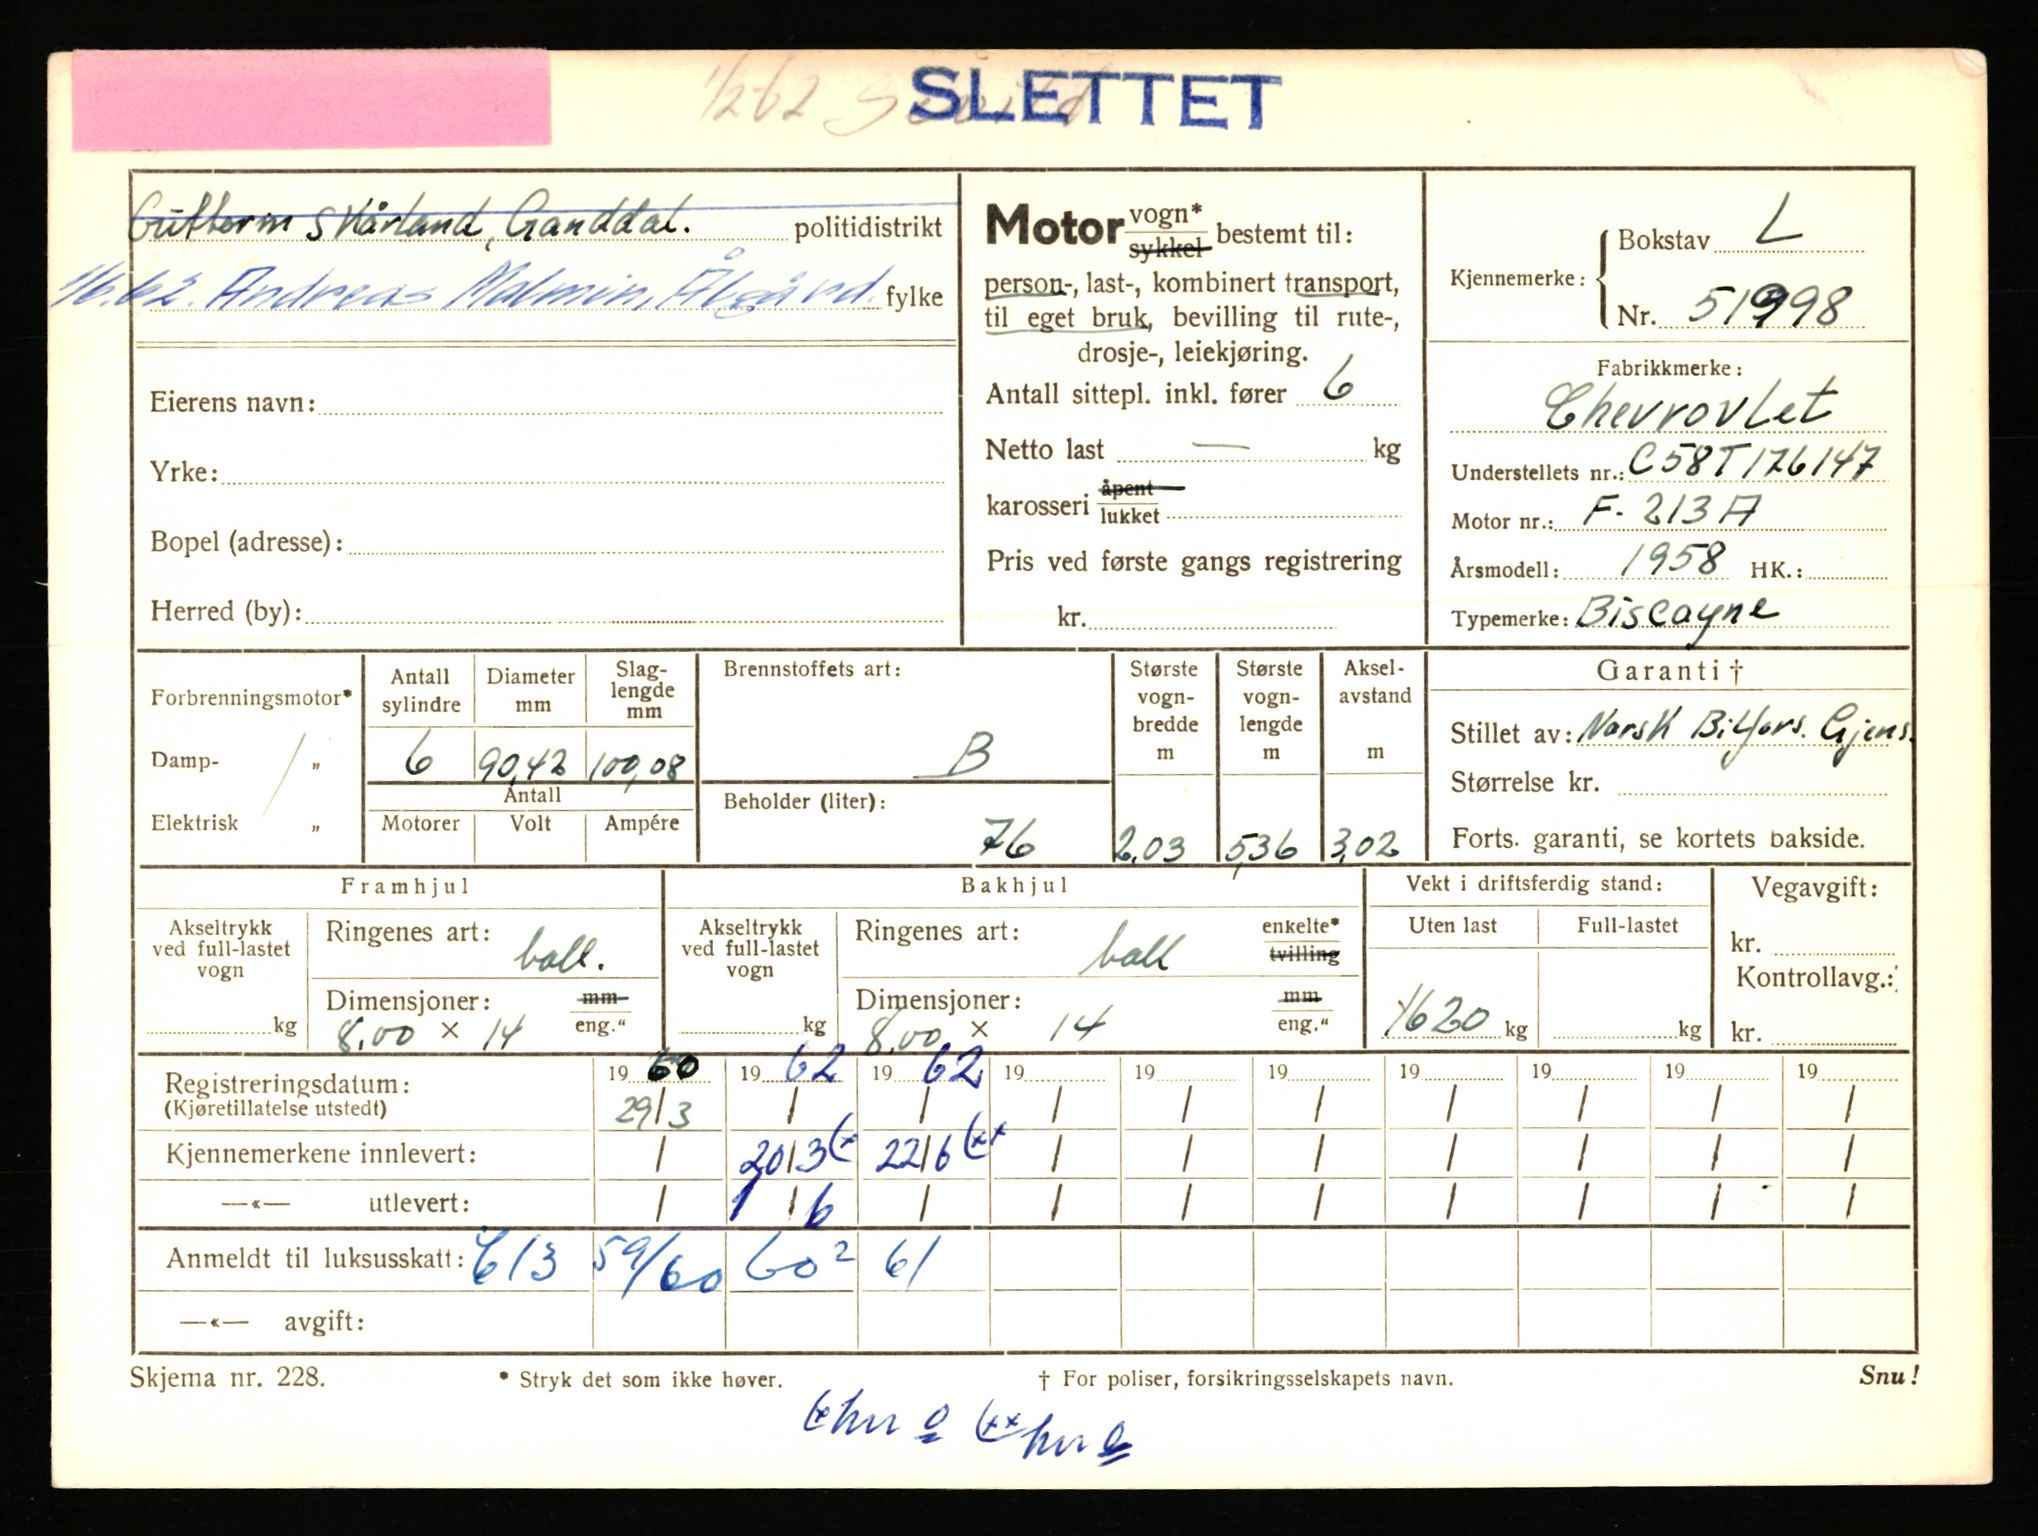 SLETTET
1/2 62
Guttorm Skårland, Ganddal. politidistrikt
1/6.62. Andreas Malmin, Ålgård. fylke
Eierens navn:
Yrke:
Bopel (adresse):
Herred (by):
Motor vogn* sykkel bestemt til:
person-, last-, kombinert transport,
til eget bruk, bevilling til rute-,
drosje-, leiekjøring.
Antall sittepl. inkl. fører 6
Netto last — kg
karosseri åpent lukket
Pris ved første gangs registrering
kr.
Kjennemerke: Bokstav L
Nr. 51998
Fabrikkmerke:
Chevrovlet
Understellets nr.: C58T176147
Motor nr.: F-213A
Årsmodell: 1958 HK.:
Typemerke: Biscayne
Forbrenningsmotor*
Damp- "
Elektrisk "
Antall sylindre Diameter mm Slag-lengde mm
6 90,42 100,08
Antall
Motorer Volt Ampére
Brennstoffets art:
B
Beholder (liter):
76
Største vogn-bredde m
2.03
Største vogn-lengde m
5,36
Aksel-avstand m
3,02
Garanti †
Stillet av: Norsk Bilfors. Gjens.
Størrelse kr.
Forts. garanti, se kortets bakside.
Framhjul
Akseltrykk ved full-lastet vogn
kg
Ringenes art: ball.
Dimensjoner: mm eng."
8.00 × 14
Bakhjul
Akseltrykk ved full-lastet vogn
kg
Ringenes art: ball enkelte* tvilling
Dimensjoner: mm eng."
8.00 × 14
Vekt i driftsferdig stand:
Uten last Full-lastet
1620 kg kg
Vegavgift:
kr.
Kontrollavg.:
kr.
Registreringsdatum: 19 60 19 62 19 62 19 19 19 19 19 19 19
(Kjøretillatelse utstedt) 29/3 / / / / / / / / /
Kjennemerkene innlevert: / 20/3 (* 22/6 (** / / / / / / /
—«— utlevert: / 1/6 / / / / / / / /
Anmeldt til luksusskatt: 613 59/60 60² 61
—«— avgift:
Skjema nr. 228. * Stryk det som ikke høver. † For poliser, forsikringsselskapets navn. Snu!